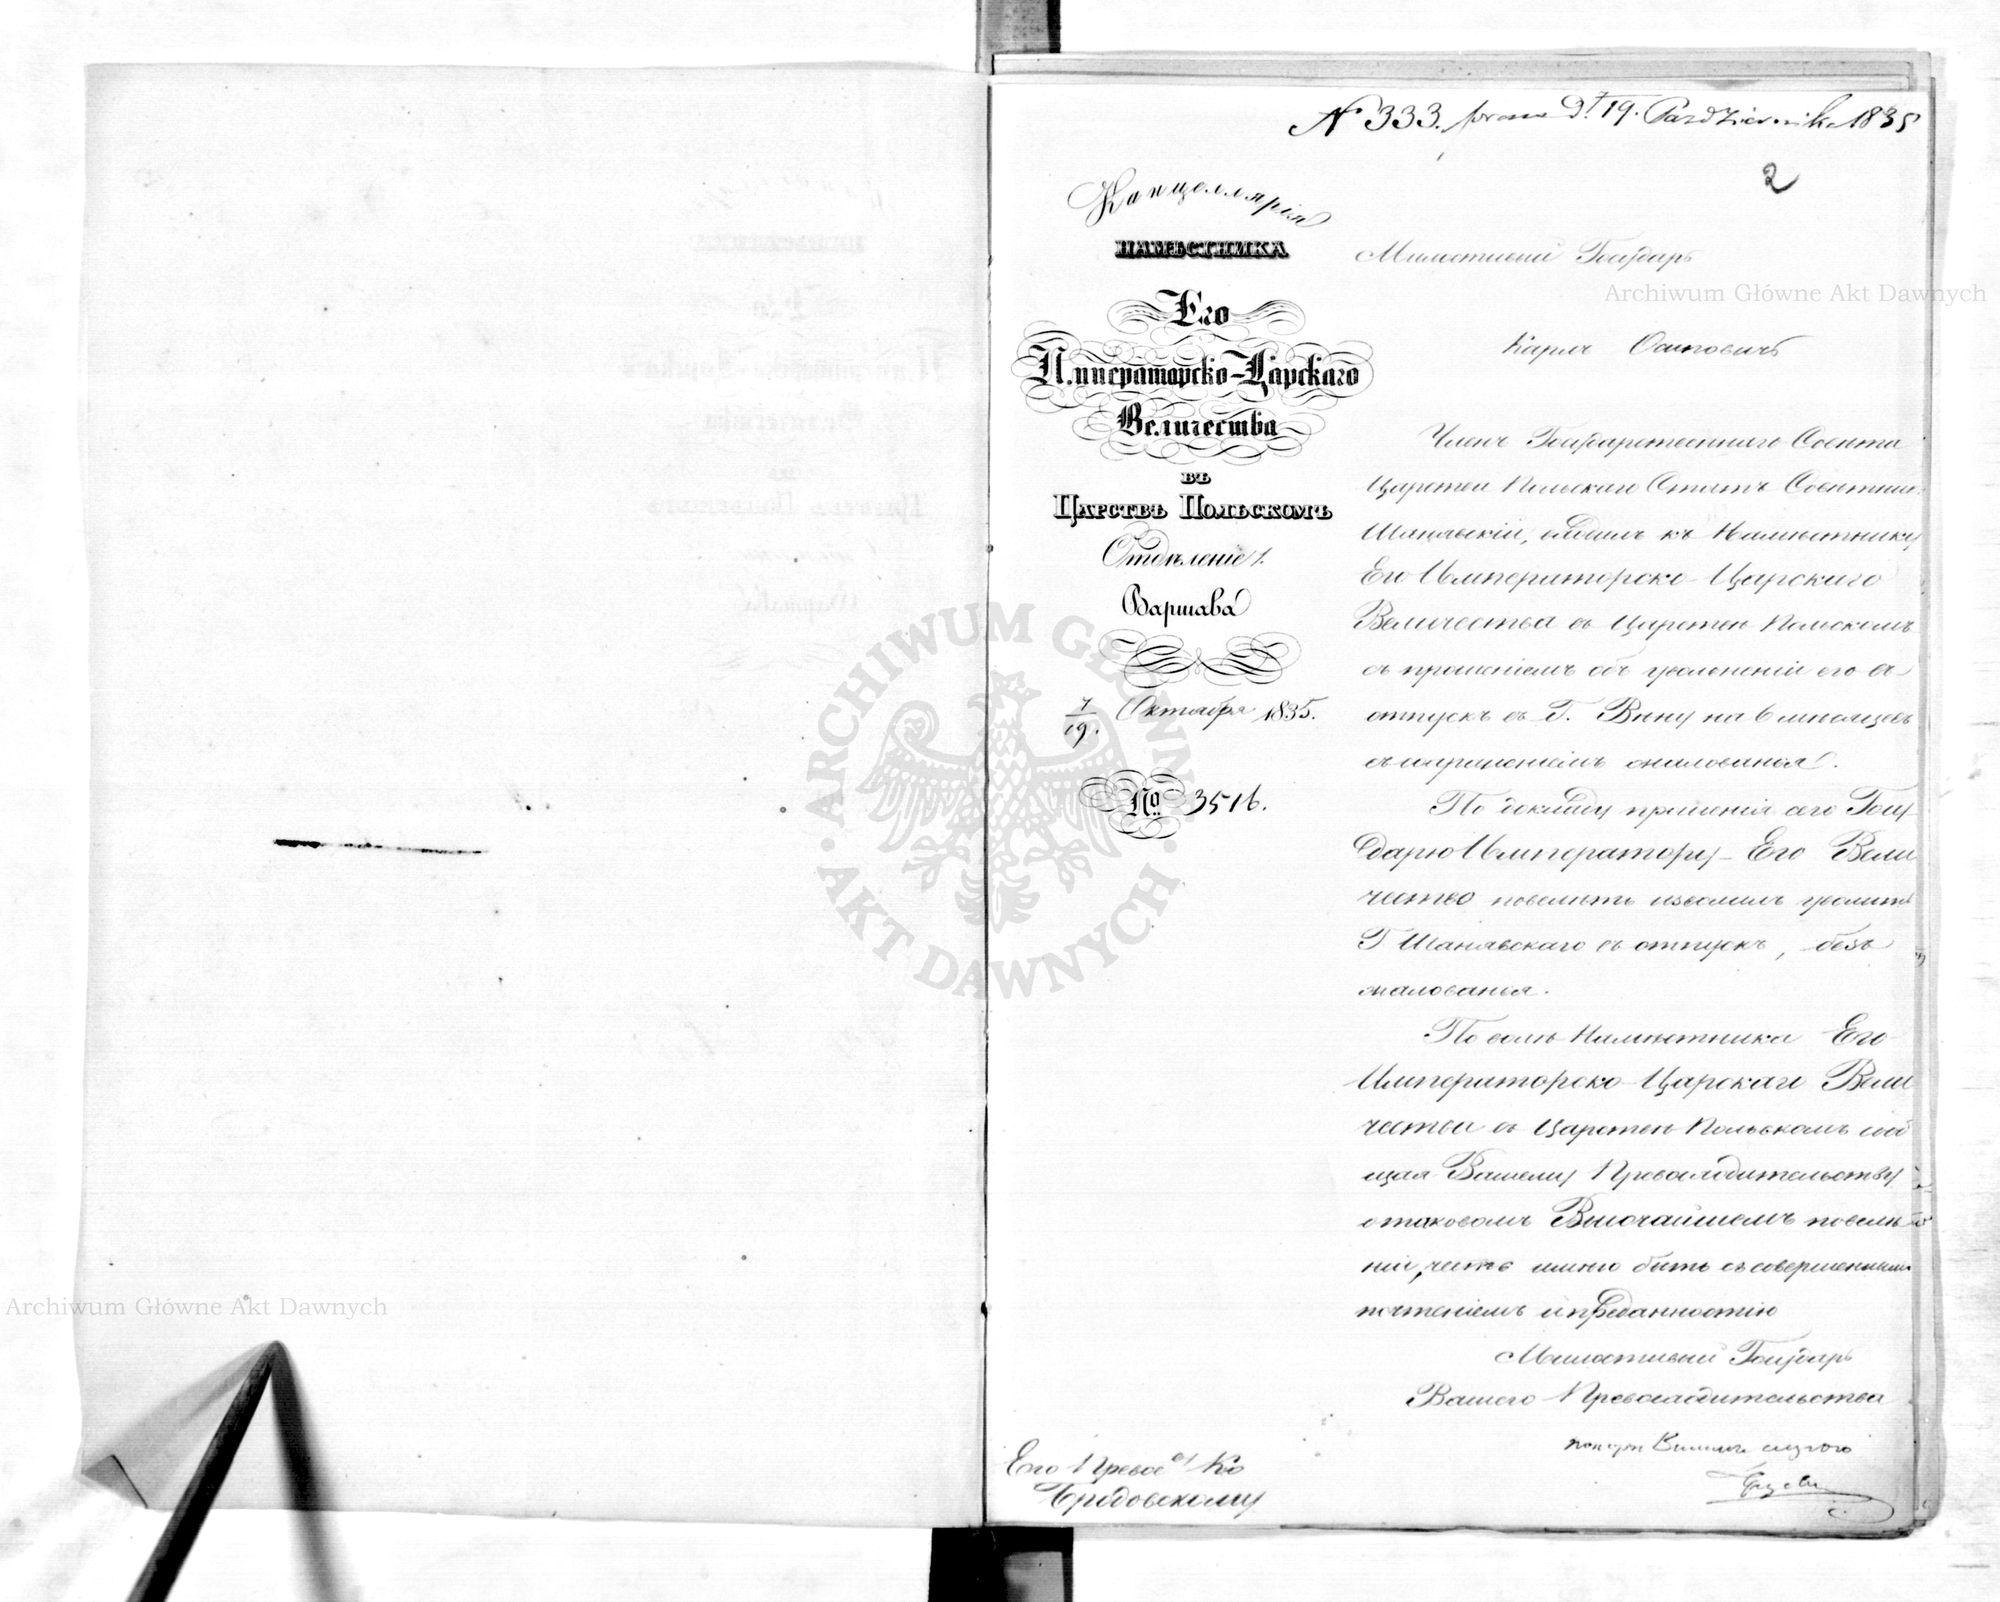 N 333. prae. d. 19. Październik. 1835
2
Канцеллярія
НАМѢСТНИКА
Его
Императорско-Царскаго
Величества
въ
Царствѣ Польскомъ
Отдѣленіе 1.
Варшава
7/19. Октября 1835.
№ 3516.
Милостивый Государь
Карлъ Осиповичъ
Членъ Государственнаго Совѣта
Царства Польскаго Статсъ Совѣтникъ
Шанявскій, входилъ къ Намѣстнику
Его Императорско-Царскаго
Величества въ Царствѣ Польскомъ
съ прошеніемъ объ увольненіи его въ
отпускъ въ Г. Вѣну на 6 мѣсяцевъ
съ сохраненіемъ жалованья.
По докладу прошенія сего Госу-
дарю Императору, Его Вели
чество повелѣть изволилъ уволить
Г Шанявскаго въ отпускъ, безъ
жалованья.
По волѣ Намѣстника Его
Императорско-Царскаго Вели
чества въ Царствѣ Польскомъ сооб
щая Вашему Превосходительству
о таковомъ Высочайшемъ повелѣ
ніи, честь имѣю быть съ совершеннымъ
почтеніемъ и преданностію
Милостивый Государь
Вашего Превосходительства
покорнѣйшимъ слугою
Его Превос-ву Ко
Бродовскому
Archiwum Główne Akt Dawnych
Archiwum Główne Akt Dawnych
ARCHIWUM GŁÓWNE AKT DAWNYCH